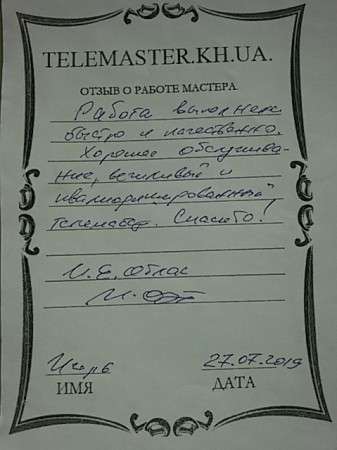 TELEMASTER.KH.UA.
ОТЗЫВ О РАБОТЕ МАСТЕРА
Работа выполнена
быстро и качественно.
Хорошее обслужива-
ние, вежливый и
квалифицированный
телемастер. Спасибо!
Игорь
27.07.2019
ИМЯ
ДАТА